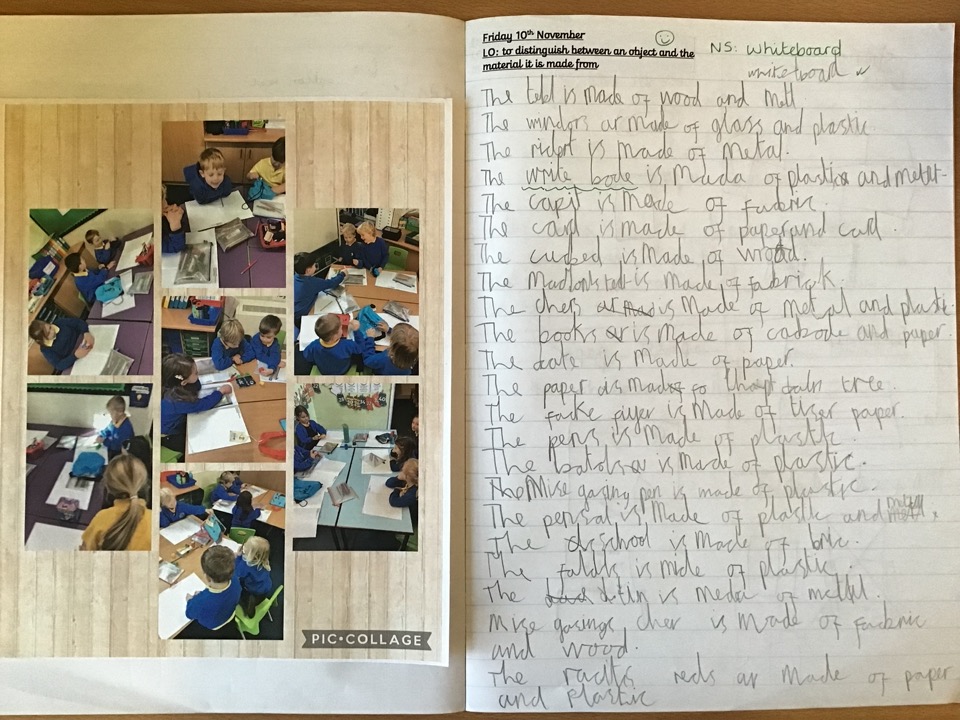 PIC•COLLAGE
Friday 10th November
LO: to distinguish between an object and the
material it is made from
NS: whiteboard
whiteboard
The tebl is made of wood and metl
The windors ar made of glass and plastic.
The ridert is made of metal.
The write bode is mada of plastic and metet
The capit is made of fabric.
The card is made of paper and card.
The cubed is made of wood.
The is made of fabrick.
The chers is made of metal and plastic.
The books is made of cabode and paper.
The date is made of paper.
The paper is tree.
The facke is made of tiser paper.
The pens is made of plastic.
The is made of plastic.
The Mise gasing pen is made of plastic.
The pensal is made of plastic and
The school is made of bric.
The is mide of plastic.
The is meda of mettl.
Mise gasings cher is made of fadric
and wood.
The reds ar made of paper
and plastic